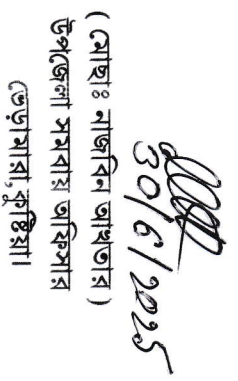 30/6/2025
(মোছাঃ নাজবিন আখতার)
উপজেলা সমবায় অফিসার
ভেড়ামারা, কুষ্টিয়া।